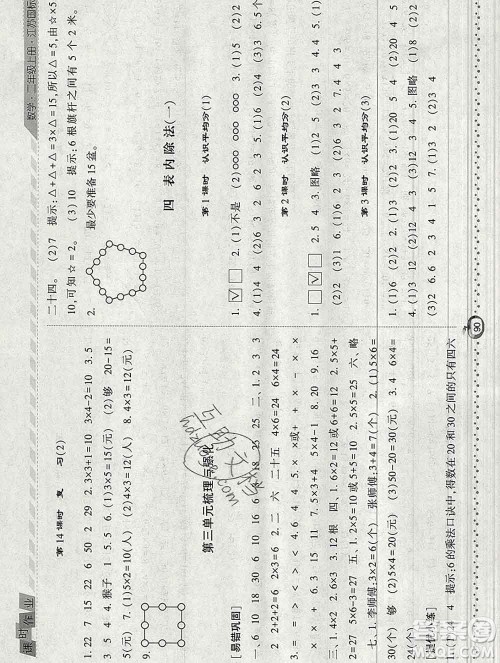 课时作业
数学·二年级上册·江苏国标
第14课时 复 习(2)
1. 22 7 15 22 6 50 2 29 2. 3×3+1=10 3×4-2=10 3. 5
3 5 4. 猴子 1 5 5. 6. (1)3×5=15(元) (2)够 20-15=
5(元) 7. (1)5×2=10(人) (2)4×3=12(人) 8. 4×3=12(元)
9.
第三单元梳理与强化
[易错巩固]
一、6 10 18 30 6 10 16 6 8 18 25 25 二、1. 2 3 3
2+2+2=6 2×3=6 2. 二 六 二十五 4×6=24 6×4=24
3. = = > < > < 4. 3 4 5. × ×或+ + × - = × ×
× × + 6. 3 15 11 7. 5×3+4 5×4-1 8. 20 9. 16
三、1. 4×2 2. 6×3 3. 12 根 四、1. 6×2=12 或 6+6=12 2. 5×5+
2=27 5×6-3=27 五、1. 2×5=10 或 5+5=10 2. 5×5=25 六、略
七、1. 李师傅:3×2=6(个) 张师傅:3+4=7(个) 2. (1)5×6=
30(个) 够 (2)5×4=20(元) (3)50-20=30(元) 3. 4 6×4=
24(个)
24 4 提示:6的乘法口诀中,得数在20和30之间的只有四六
二十四。 (2)7 提示:△+△+△=3×△=15,所以△=5,由☆×5=
10,可知☆=2。 (3)10 提示:6根旗杆之间有5个2米。
2. 最少要准备15盆。
四 表内除法(一)
第1课时 认识平均分(1)
1. ☑ □ 2. (1)不是 (2)000 000 000 3. (1)5 (2)2
4. (1)4 4 (2)6 3 2 6 2 3 5. (1)6 (2)4 (3)3 6. 5
第2课时 认识平均分(2)
1. □ ☑ □ 2. 5 4 3. 图略 (1)2 5 (2)3 4 4. 5 5. (1)
(2)2 (3)1 6. (1)6 3 2
第3课时 认识平均分(3)
1. (1)6 (2)2 2. (1)3 (2)2 3. (1)20 5 4 (2)20 4 5
4. (1)3 12 (2)12 4 3 (3)12 3 4 5. 图略 (1)8 (2)
(3)2 6. 6 2 3 4 1 5 7. (1)3 (2)4
90